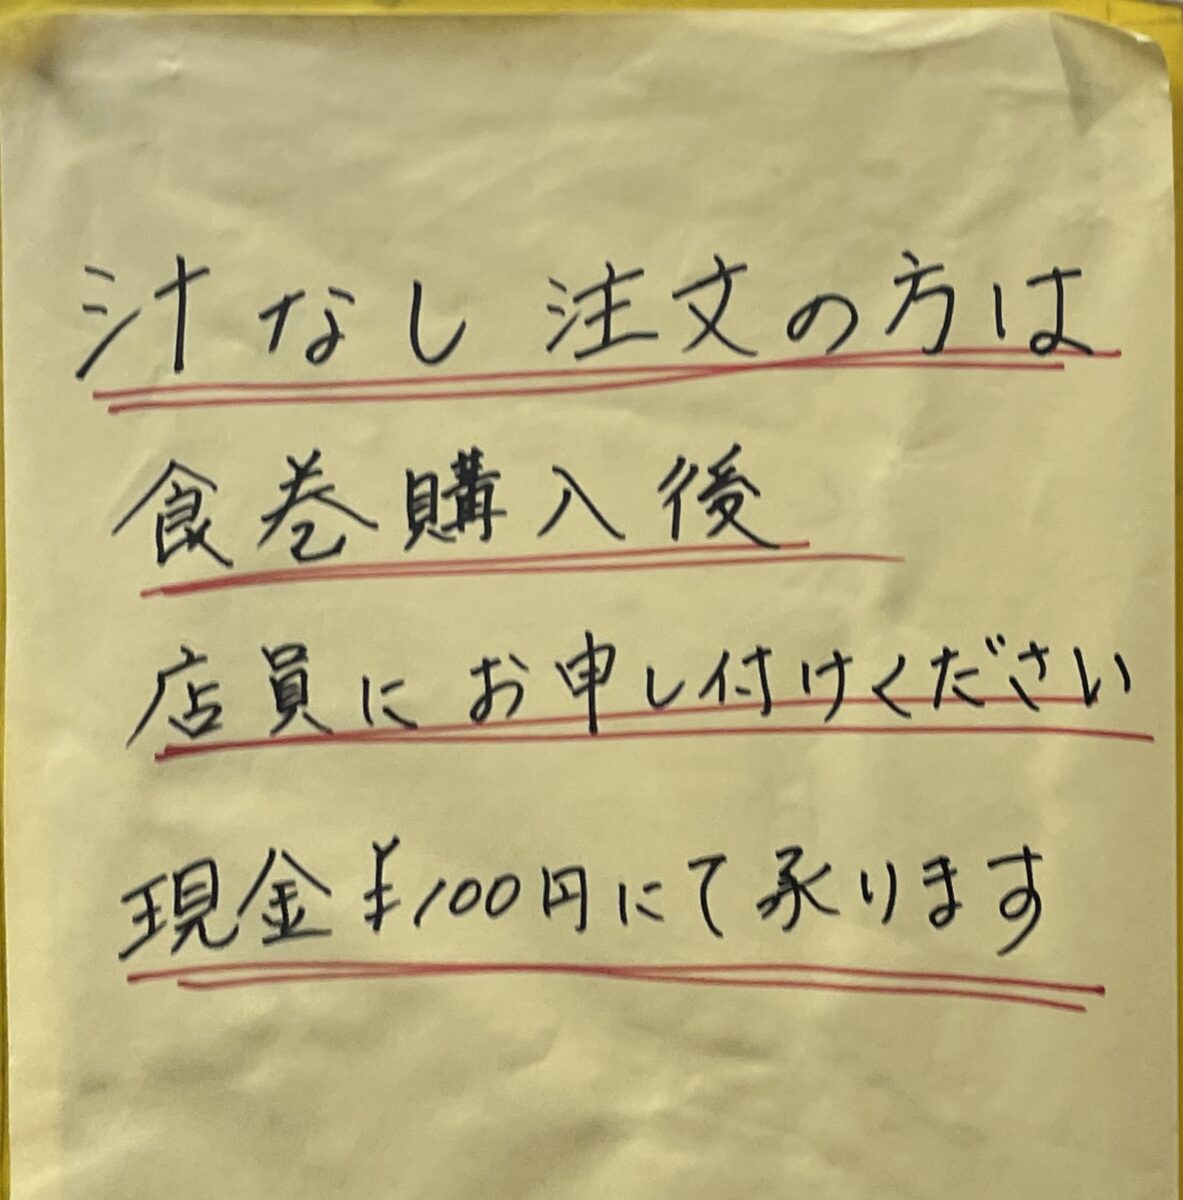 汁なし 注文の方は
食巻購入後
店員にお申し付けください
現金¥100円にて承ります